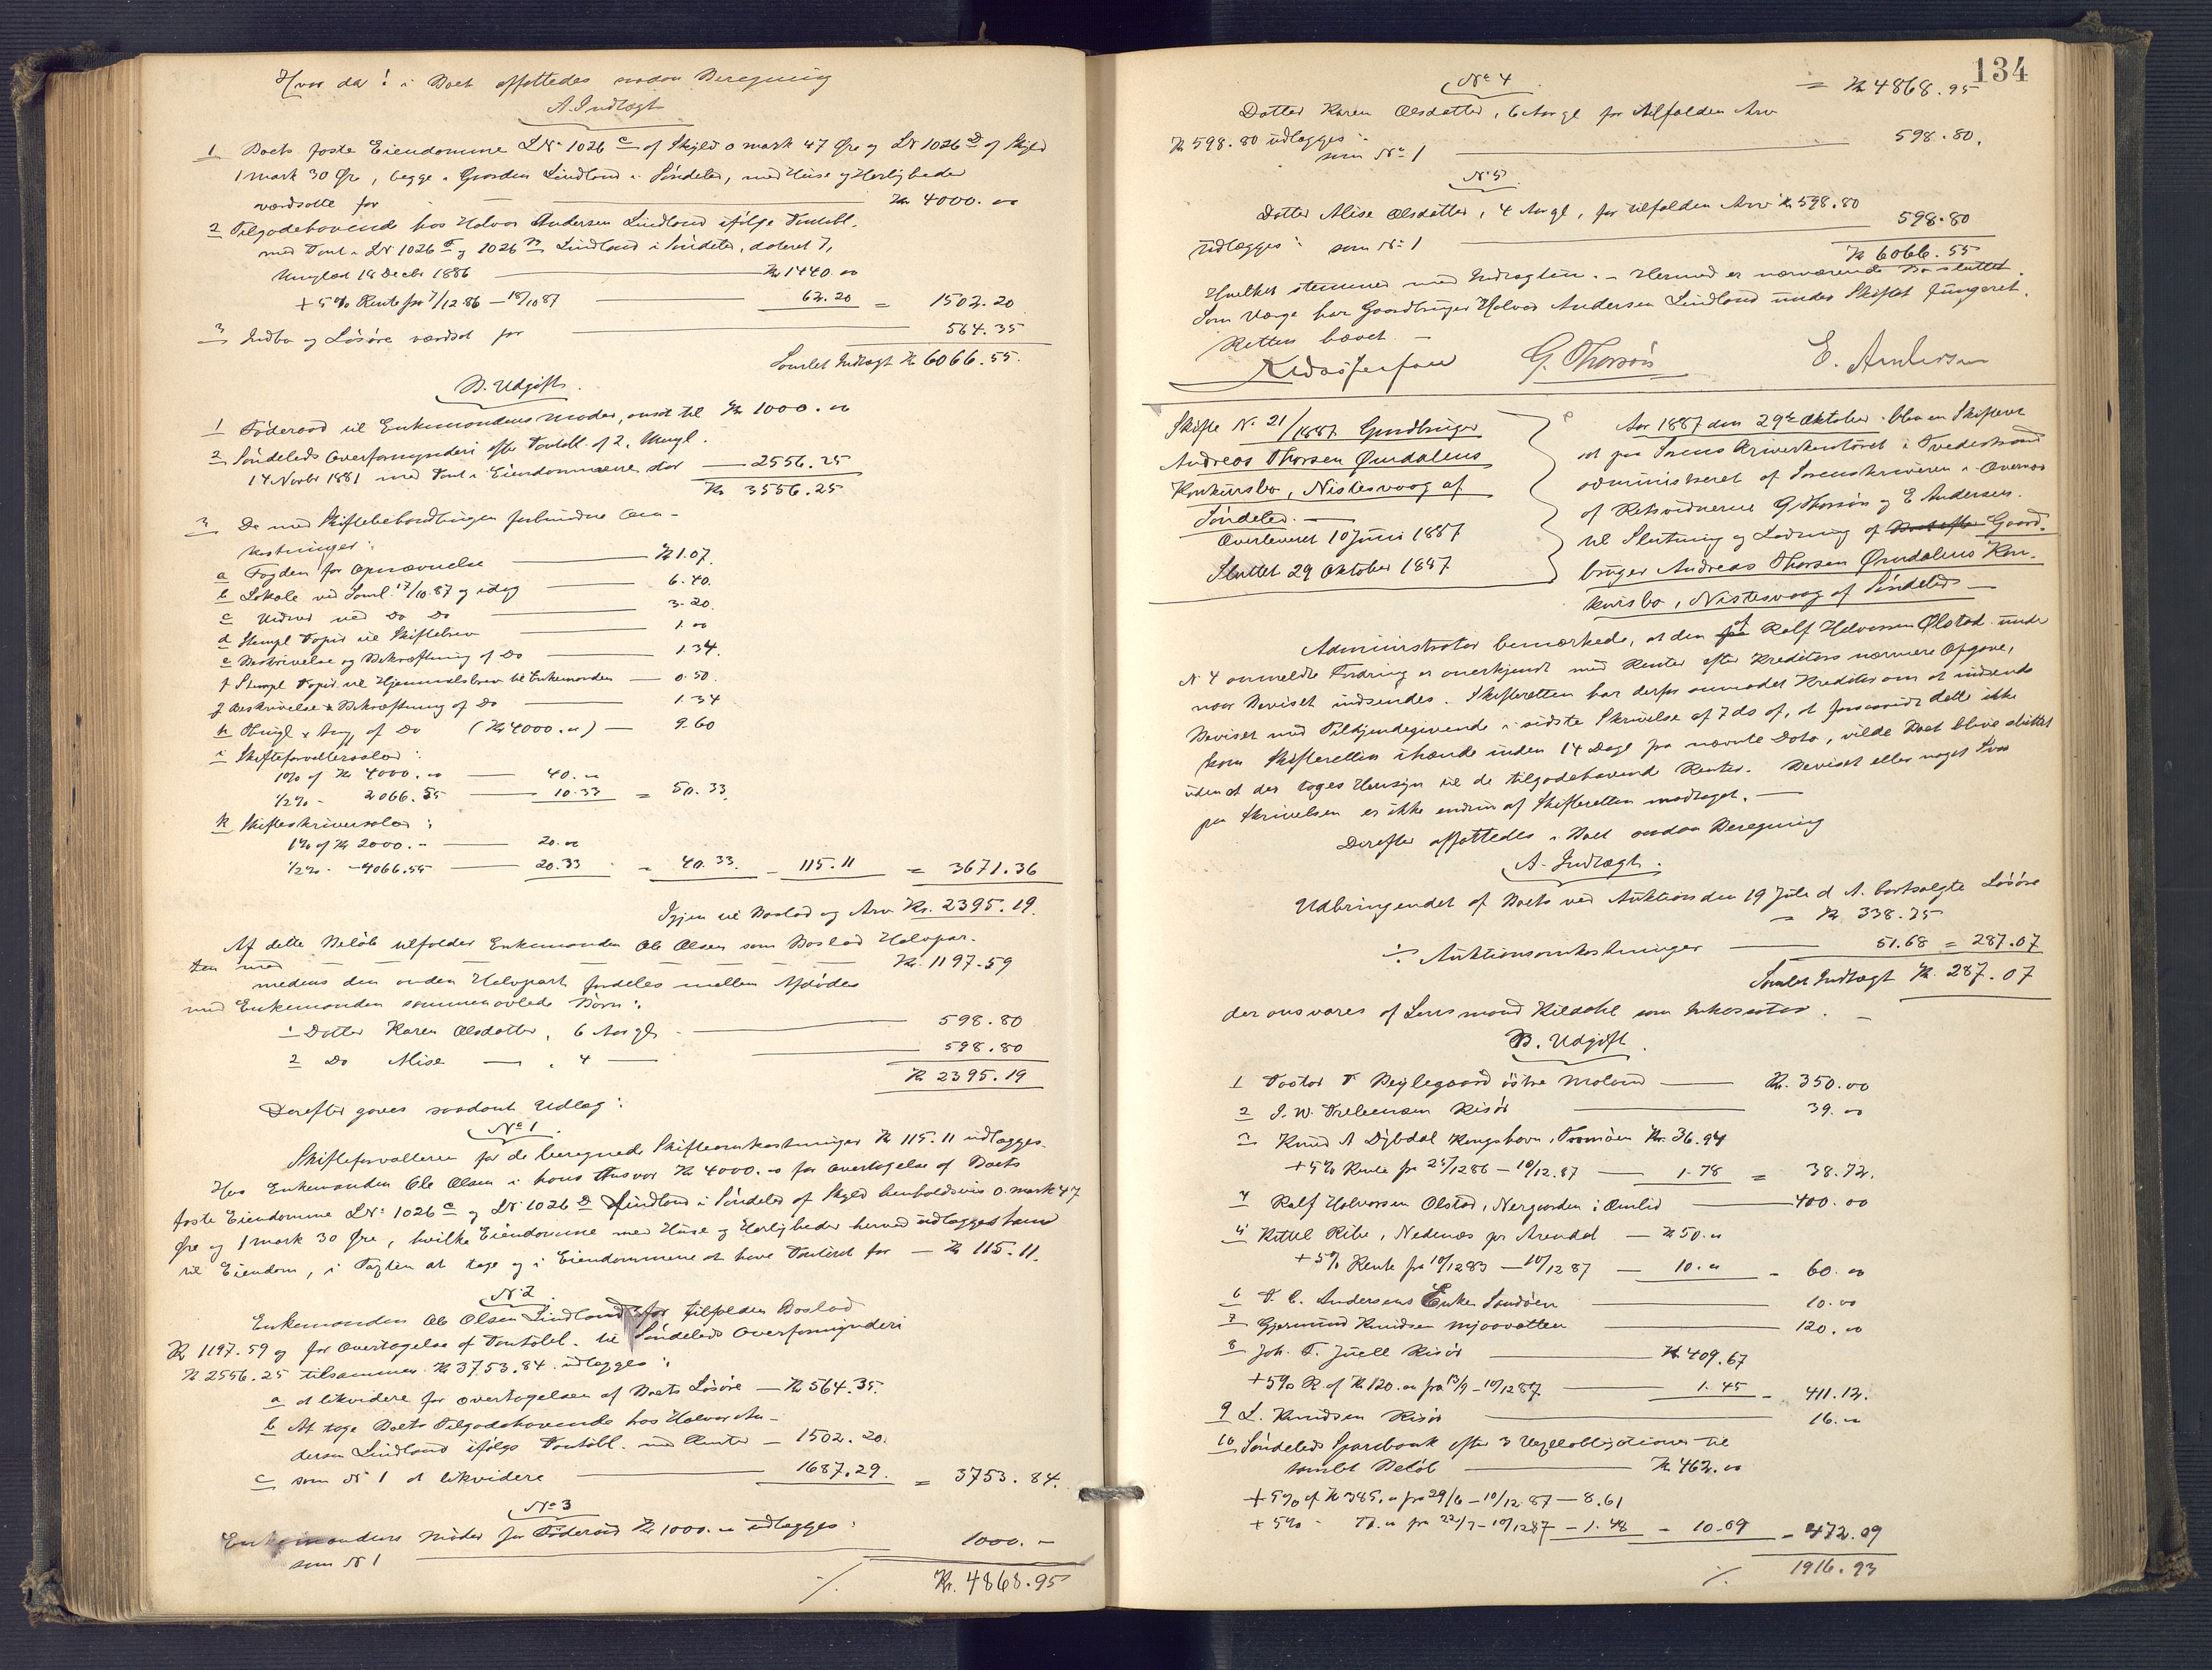 Hvor da i Boet affattedes saadan Beregning
A. Indtægt
1 Boets faste Eiendomme LNr 1026 c af Skyld 0 mark 47 Øre og LNr 1026 D af Skyld
1 mark 30 Øre, begge i Gaarden Lindland i Søndeled, med Huse og Herligheder
værdsatte for Kr 4000.00
2 Tilgodehavende hos Halvor Andersen Lindland ifølge Pantobl.
med Pant i LNr 1026 og 1026 Lindland i Søndeled, dateret 7,
thinglæst 18 Decbr 1886 Kr 1440.00
+ 5% Rente fra 7/12 86 – 18/10 87 62.20 = 1502.20
3 Indbo og Løsøre værdsat for 564.35
Samlet Indtægt Kr 6066.55.
B. Udgift.
1 Føderaad til Enkemandens Moder, ansat til Kr 1000.00
2 Søndeleds Overformynderi efter Pantobl. af 2, thingl.
14 Novbr 1881 med Pant i Eiendommene stor 2556.25
Kr 3556.25
3 De med Skiftebehandlingen forbundne Om-
kostninger:
a Fogden for Opnævnelse Kr 1.07.
b Lokale ved Saml. 17/10.87 og idag 6.40.
c Vidner ved Do Do 3.20.
d Stempl Papir til Skiftebrev 1.00
e Beskrivelse og Bekræftning af Do 1.34.
f Stempl Papir til Hjemmelsbrev til Enkemanden 0.50.
g Beskrivelse & Bekræftning af Do 1.34
h Thingl & Anm af Do (Kr 4000.00) 9.60
i Skifteforvaltersalær:
1% af Kr 4000.00 40.00
1/2% - 2066.55 10.33 = 50.33.
k Skifteskriversalær:
1% af Kr 2000.- 20.00
1/2% - - 4066.55 20.33 = 40.33. – 115.11 = 3671.36
Igjen til Boslod og Arv Kr. 2395.19.
Af dette Beløb tilfalder Enkemanden Ole Olsen som Boslod Halvpar-
ten med Kr. 1197.59
medens den anden Halvpart fordeles mellem Afdødes
med Enkemanden sammenavlede Børn:
1 Datter Karen Olsdatter, 6 Aar gl. 598.80
2 Do Alise — , 4 — 598.80
Kr 2395.19
Derefter gaves saadant Udlæg:
No 1.
Skifteforvalteren for de beregnede Skifteomkostninger Kr 115.11 udlægges
Hos Enkemanden Ole Olsen i hans Ansvar Kr 4000.00 for Overtagelse af Boets
faste Eiendomme LNr. 1026 c og LNr 1026 D Lindland i Søndeled af Skyld henholdsvis 0 mark 47
Øre og 1 mark 30 Øre, hvilke Eiendomme med Huse og Herligheder herved udlægges ham
til Eiendom, i Pagten at tage og i Eiendommene at have Panteret for — Kr 115.11.
No 2.
Enkemanden Ole Olsen Lindland for tilfalden Boslod
Kr 1197.59 og for Overtagelse af Pantobl. til Søndeleds Overformynderi
Kr 2556.25 tilsammen Kr 3753.84 udlægges:
a at likvidere for Overtagelsen af Boets Løsøre — Kr 564.35.
b At tage Boets Tilgodehavende hos Halvor An-
dersen Lindland ifølge Pantobl. med Renter — 1502.20.
c som No 1 at likvidere 1687.29. = 3753.84.
No 3
Enkemandens Moder for Føderaad Kr 1000.00 udlægges:
som No 1 1000. –
./. Kr. 4868.95
134
No 4 = Kr 4868.95
Datter Karen Olsdatter, 6 Aar gl for tilfalden Arv
Kr 598.80 udlægges:
som No 1 598.80.
No 5.
Datter Alise Olsdatter, 4 Aar gl, for tilfalden Arv Kr 598.80
udlægges: som No 1 598.80
Kr 6066.55
Hvilket stemmer med Indtægten. – Hermed er nærværende Bo sluttet.
Som Værge har Gaardbruger Halvor Andersen Lindland under Skiftet fungeret.
Retten hævet. –
G. Thorsøn E. Andersen
Skifte No 21/1887. Gaardbruger
Andreas Thorsen Ørndalens
Konkursbo, Nistesvaag af
Søndeled. –
Overleveret 10 Juni 1887
Sluttet 29 Oktober 1887
Aar 1887 den 29de Oktober blev en Skifteret
sat paa Sorenskriverkontoret i Tvedestrand
administreret af Sorenskriveren i Overvær
af Retsvidnerne G. Thorsøn og E. Andersen.
til Slutning og Lodning af Boet efter Gaard-
bruger Andreas Thorsen Ørndalens Kon-
kursbo, Nistesvaag af Søndeled. –
Administrator bemærkede, at den af Ralf Halvorsen Ølstad under
No 4 anmeldte Fordring er anerkjendt med Renter efter Kreditors nærmere Opgave,
naar Beviset indsendes. Skifteretten har derfor anmodet Kreditor om at indsende
Beviset med Tilkjendegivende i sidste Skrivelse af 7 ds af, at forsaavidt dette ikke
kom Skifteretten ihænde inden 14 Dage fra nævnte Dato, vilde Boet blive sluttet
uden at der toges Hensyn til de tilgodehavende Renter. Beviset eller noget Svar
paa Skrivelsen er ikke endnu af Skifteretten modtaget. –
Derefter affattedes i Boet saadan Beregning
A. Indtægt.
Udbringendet af Boets ved Auktion den 19 Juli d. A. bortsolgte Løsøre
= Kr. 338.75
÷ Auktionsomkostninger 51.68 = 287.07
Samlet Indtægt Kr. 287.07
der ansvares af Lensmand Kildahl som Inkassator. –
B. Udgift.
1 Pastor P. Bejlegaard østre Moland Kr. 350.00
2 I. W. Risør 39.00
3 Knud A Dybdal Kongshavn, Tromøen Kr. 36.94
+ 5% Rente fra 25/12 86 – 10/12.87 1.78 = 38.72.
4 Ralf Halvorsen Ølstad, Nergaarden i Omlid 400.00
5 Kittel Ribe, Nedenæs pr Arendal Kr 50.00
+ 5% Rente fra 10/12 83 – 10/12 87 10.00 = 60.00
6 T. C. Andersens Enke Sandøen 10.00
7 Gjermund Knudsen Mjaavatten 120.00
8 Joh. F. Juell Risør Kr. 409.67
+ 5% R. af Kr 120.00 fra 13/9 – 10/12 87 1.45 = 411.12.
9 L. Knudsen Risør 16.00
10 Søndeleds Sparebank efter 3 Vexelobligationer til
samlet Beløb Kr 462.00
+ 5% af Kr 385.00 fra 29/6 – 10/12 87 – 8.61
+ 5% - 77.00 fra 22/7 – 10/12 87 – 1.48 = 10.09 = 472.09
./. 1916.93